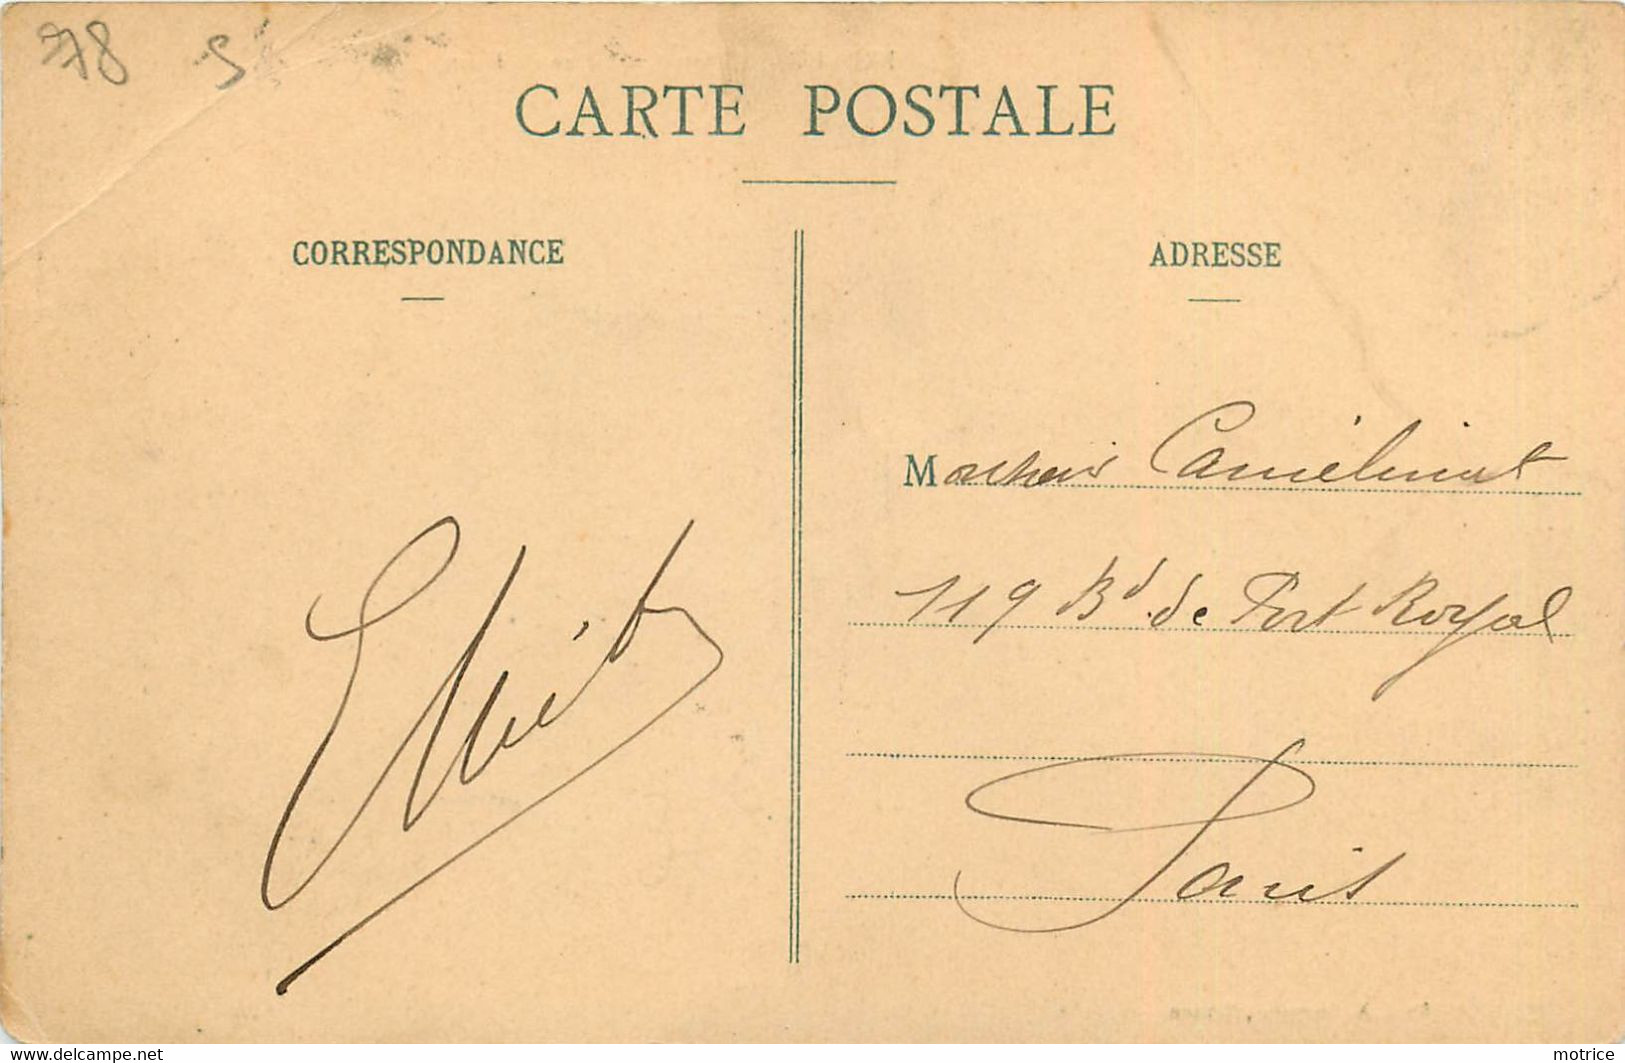 78 5
CARTE POSTALE
CORRESPONDANCE
ADRESSE
Monsieur Camélinat
119 Bd de Port Royal
Paris
www.delcampe.net
motrice